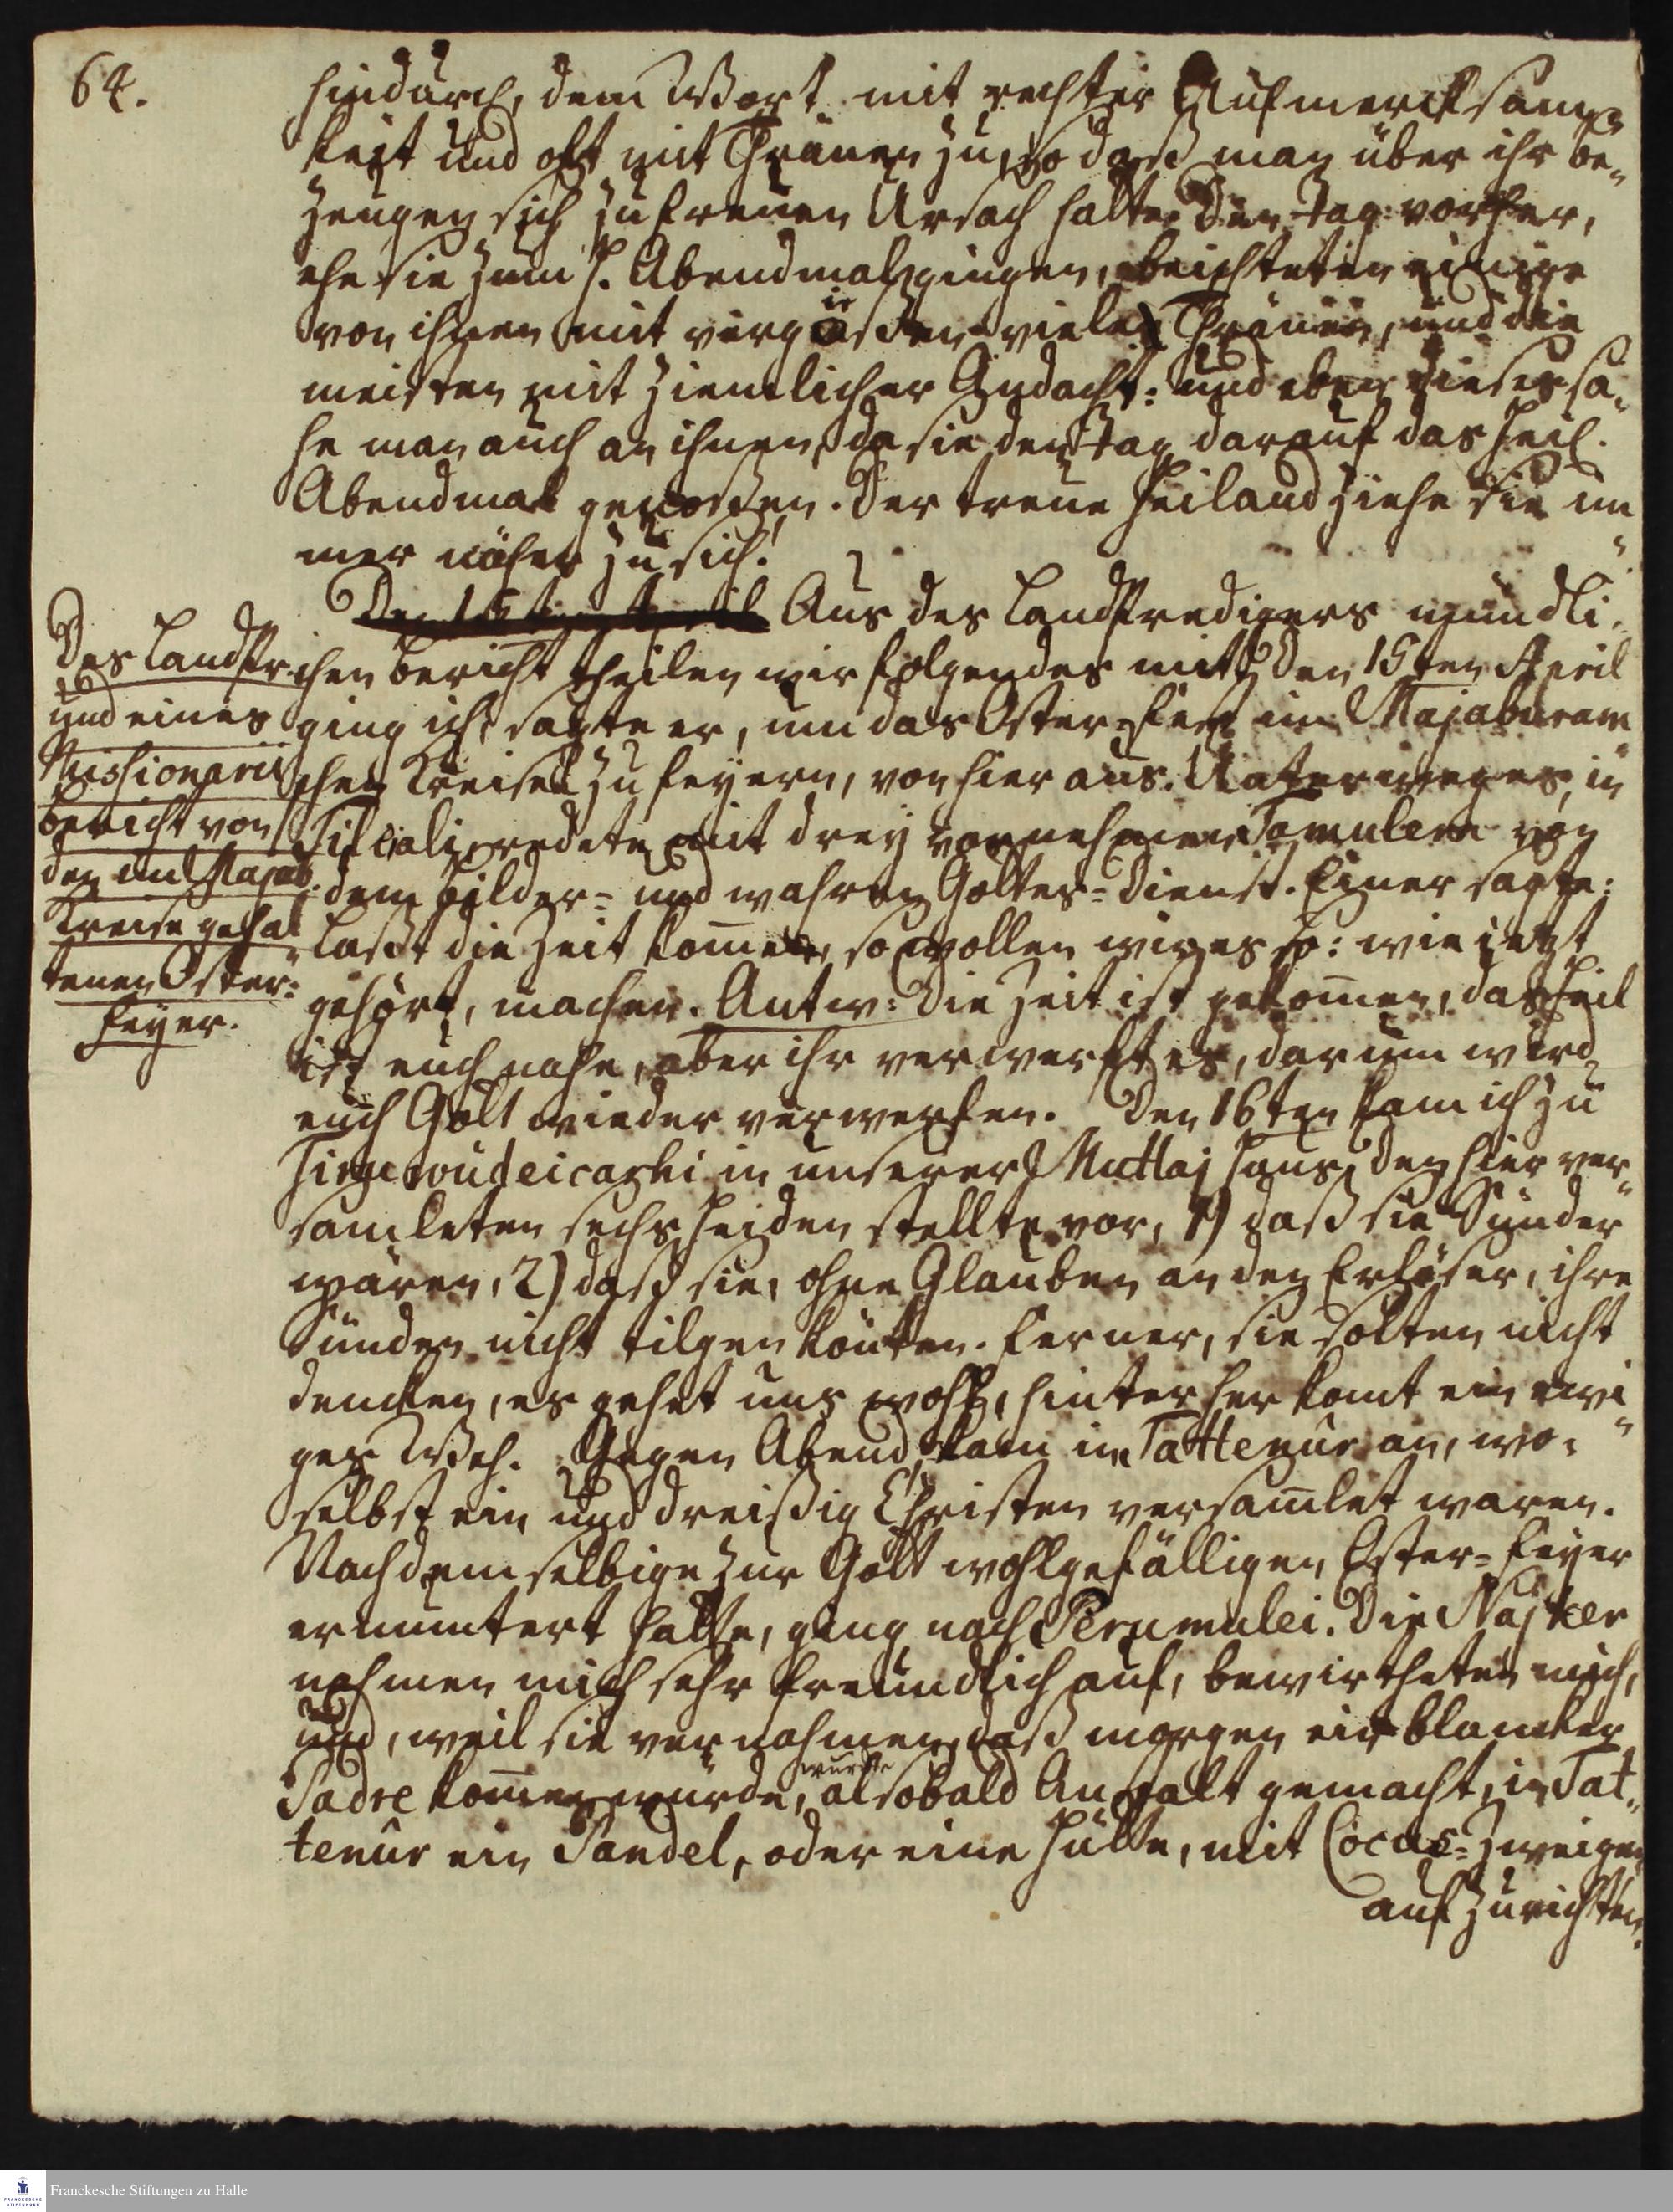 64.
hindurch, dem Wort mit rechter Aufmercksam=
keit und oft mit Thränen zu, so daß man über ihr be=
zeugen sich zu freuen Ursach hatte. Den Tag vorher,
ehe sie zum H. Abendmal gingen, beichteten einige
von ihnen mit vergießen vieler Thränen, und die
meisten mit ziemlicher Andacht: und eben dieses sa=
he man auch an ihnen, da sie den Tag darauf das heil.
Abendmal genoßen. Der treue Heiland ziehe sie im=
mer näher zu sich!
Den 15ten April Aus des Landpredigers mündli=
chen Bericht theilen wir folgendes mit: Den 15ten April
ging ich, sagte er, um das Oster=Fest im Majaburam
schen Kreise zu feyern, von hier aus. Unterweges, in
Tilleali, redete mit drey vornehmen Tamulern von
dem Bilder= und wahren Gottes=Dienst. Einer sagte:
Laßt die Zeit kom̅en, so wollen wir es so: wie jetzt
gehört, machen. Antw: Die Zeit ist gekom̅en, das Heil
ist euch nahe, aber ihr verwerft es, darum wird
euch Gott wieder verwerfen. Den 16ten kam ich zu
Tirucoudeicaghi in unserer Muttaj Haus, den hier ver=
samleten sechs Heiden stellte vor, 1) daß sie Sünder
wären, 2) daß sie, ohne Glauben an den Erlöser, ihre
Sünden nicht tilgen könten. Ferner, sie solten nicht
dencken, es gehet uns wohl, hinterher komt ein ewi=
ges Weh. Gegen Abend kam in Tattenur an, wo=
selbst ein und dreißig Christen versam̅let waren.
Nachdem selbige zur Gott wohlgefälligen Oster=Feyer
ermuntert hatte, ging nach Perumulei. Die Najker
nahmen mich sehr freundlich auf, bewirtheten mich,
und, weil sie vernahmen, daß morgen ein blancker
Padre kom̅en würde, wurde alsobald Anstalt gemacht, in Tat=
tenur ein Pandel, oder eine Hütte, mit Cocus=Zweigen
aufzurichten.
Des Landpr.
und eines
Missionarii
Bericht von
der im Majab.
Kreise gehal
tenen Oster=
Feyer.
Franckesche Stiftungen zu Halle